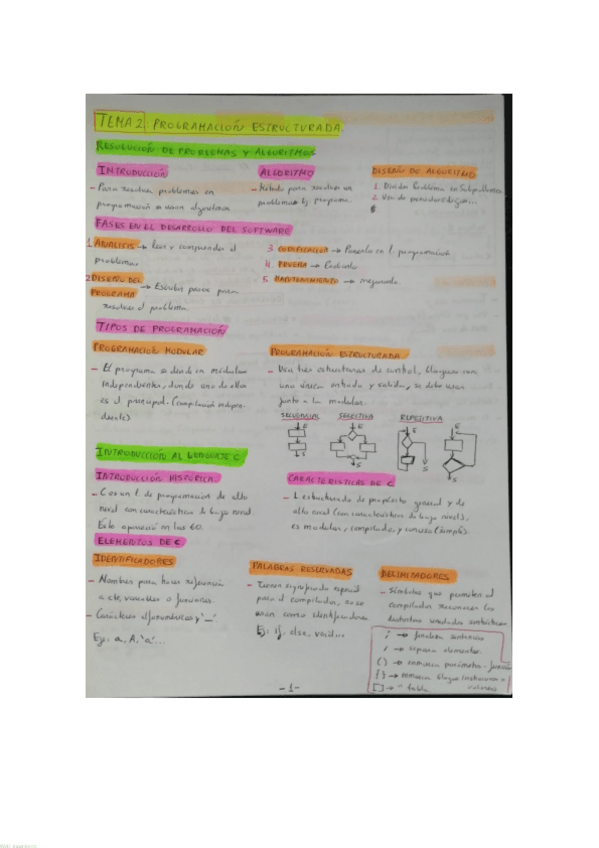 TEMA 2: PROGRAMACIÓN ESTRUCTURADA.
RESOLUCIÓN DE PROBLEMAS Y ALGORITMOS
INTRODUCCIÓN
- Para resolver problemas en
programación se usan algoritmos
ALGORITMO
- Método para resolver un
problema. Ej. programa.
DISEÑO DE ALGORITMO
1. Dividir Problema en Subproblemas
2. Uso de pseudocódigo...
FASES EN EL DESARROLLO DEL SOFTWARE
1 ANÁLISIS → leer y comprender el
problema.
2 DISEÑO DEL
PROGRAMA → Escribir pasos para
resolver el problema.
3. CODIFICACIÓN → Pasarlo a l. programación
4. PRUEBA →
5. MANTENIMIENTO →
TIPOS DE PROGRAMACIÓN
PROGRAMACIÓN MODULAR
- El programa se divide en módulos
independientes, donde uno de ellos
es el principal. (compilación indepen-
diente).
PROGRAMACIÓN ESTRUCTURADA.
- Usa tres estructuras de control, bloques con
una única entrada y salida, se debe usar
junto a la modular.
SECUENCIAL SELECTIVA REPETITIVA
E E E E
S S S S
INTRODUCCIÓN AL LENGUAJE C
INTRODUCCIÓN HISTÓRICA
- C es un l. de programación de alto
nivel con características de bajo nivel.
Este apareció en los 60.
CARACTERÍSTICAS DE C
- L estructurado de propósito general y de
alto nivel (con características de bajo nivel),
es modular, compilado, y conciso (simple).
ELEMENTOS DE C
IDENTIFICADORES
- Nombres para hacer referencia
a cte, variables o funciones.
- Carácteres alfanuméricos y '_'.
Ej: a, A, 'a'...
PALABRAS RESERVADAS
- Tienen significado especial
para el compilador, no se
usan como identificadores
Ej: if, else, void...
DELIMITADORES
- Símbolos que permiten al
compilador reconocer las
distintas unidades sintácticas
; → finalizar sentencias
, → separa elementos.
( ) → enmarcan parámetros - función
{ } → enmarcan bloque instrucciones o
valores
[ ] → " tabla
- 1 -